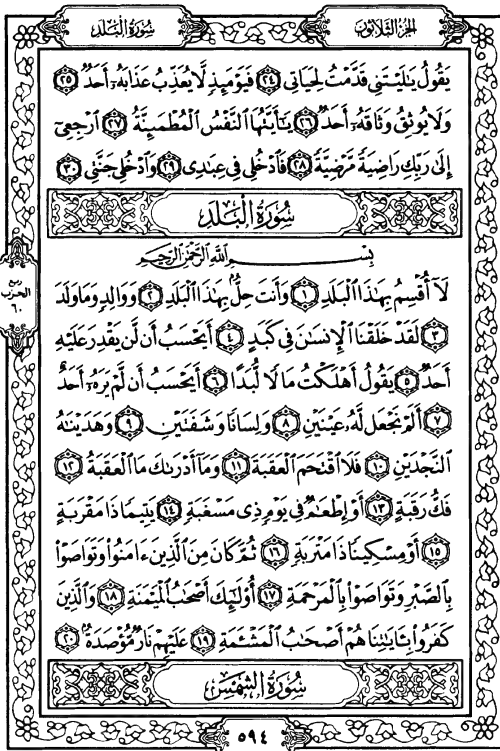 سُورَةُ الْبَلَدِ
الجُزْءُ الثَّلَاثُونَ
يَقُولُ يَٰلَيْتَنِى قَدَّمْتُ لِحَيَاتِى ٢٤ فَيَوْمَئِذٍ لَّا يُعَذِّبُ عَذَابَهُۥٓ أَحَدٌ ٢٥
وَلَا يُوثِقُ وَثَاقَهُۥٓ أَحَدٌ ٢٦ يَٰٓأَيَّتُهَا النَّفْسُ الْمُطْمَئِنَّةُ ٢٧ ارْجِعِىٓ
إِلَىٰ رَبِّكِ رَاضِيَةً مَّرْضِيَّةً ٢٨ فَادْخُلِى فِى عِبَٰدِى ٢٩ وَادْخُلِى جَنَّتِى ٣٠
سُورَةُ الْبَلَدِ
بِسْمِ اللَّهِ الرَّحْمَٰنِ الرَّحِيمِ
لَآ أُقْسِمُ بِهَٰذَا الْبَلَدِ ١ وَأَنتَ حِلٌّۢ بِهَٰذَا الْبَلَدِ ٢ وَوَالِدٍ وَمَا وَلَدَ
٣ لَقَدْ خَلَقْنَا الْإِنسَٰنَ فِى كَبَدٍ ٤ أَيَحْسَبُ أَن لَّن يَقْدِرَ عَلَيْهِ
أَحَدٌ ٥ يَقُولُ أَهْلَكْتُ مَالًا لُّبَدًا ٦ أَيَحْسَبُ أَن لَّمْ يَرَهُۥٓ أَحَدٌ
٧ أَلَمْ نَجْعَل لَّهُۥ عَيْنَيْنِ ٨ وَلِسَانًا وَشَفَتَيْنِ ٩ وَهَدَيْنَٰهُ
النَّجْدَيْنِ ١٠ فَلَا اقْتَحَمَ الْعَقَبَةَ ١١ وَمَآ أَدْرَىٰكَ مَا الْعَقَبَةُ ١٢
فَكُّ رَقَبَةٍ ١٣ أَوْ إِطْعَٰمٌ فِى يَوْمٍ ذِى مَسْغَبَةٍ ١٤ يَتِيمًا ذَا مَقْرَبَةٍ
١٥ أَوْ مِسْكِينًا ذَا مَتْرَبَةٍ ١٦ ثُمَّ كَانَ مِنَ الَّذِينَ ءَامَنُوا۟ وَتَوَاصَوْا۟
بِالصَّبْرِ وَتَوَاصَوْا۟ بِالْمَرْحَمَةِ ١٧ أُو۟لَٰٓئِكَ أَصْحَٰبُ الْمَيْمَنَةِ ١٨ وَالَّذِينَ
كَفَرُوا۟ بِـَٔايَٰتِنَا هُمْ أَصْحَٰبُ الْمَشْـَٔمَةِ ١٩ عَلَيْهِمْ نَارٌ مُّؤْصَدَةٌۢ ٢٠
سُورَةُ الشَّمْسِ
ربع
الحزب
٦٠
٥٩٤